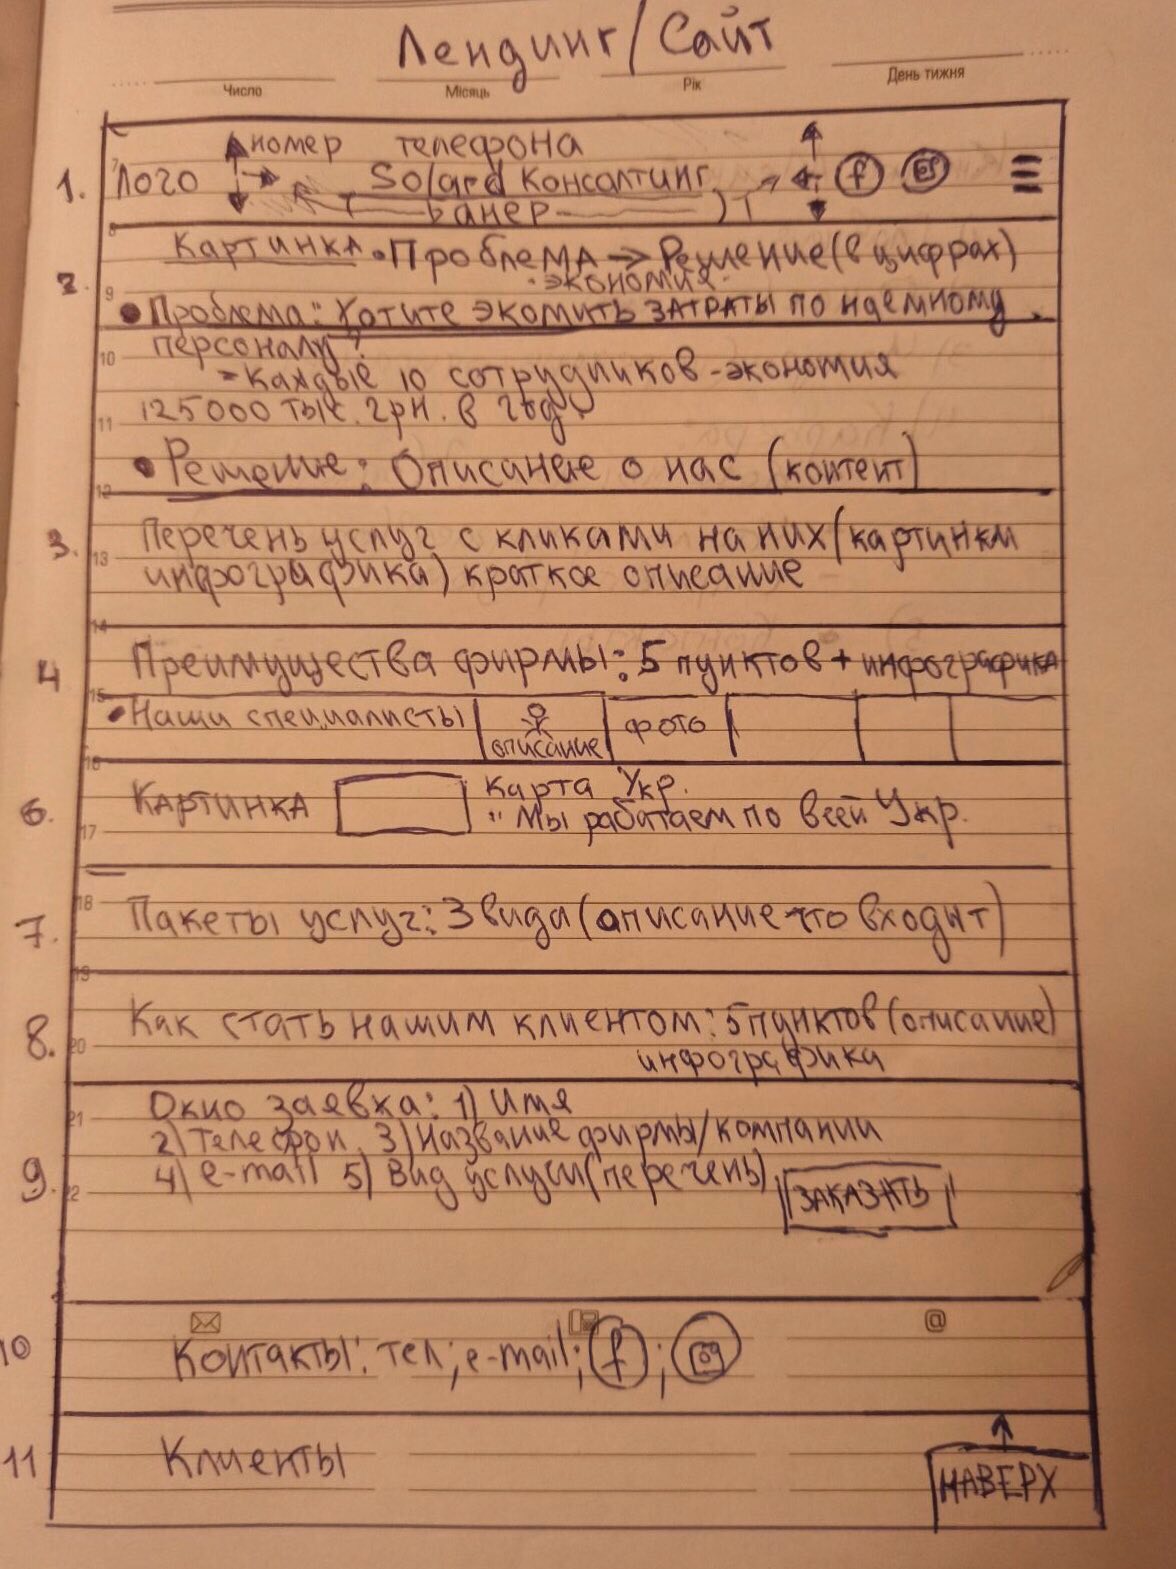 Лендинг/Сайт
Число Місяць Рік День тижня
номер телефона
1. Лого Solard Консалтинг f
7
Банер
8
Картинка • Проблема → Решение (в цифрах)
2. экономия
9
• Проблема: Хотите экомить затраты по наемному
персоналу?
10
- Каждые 10 сотрудников - экономия
125000 тыс. грн. в год.
11
• Решение: Описание о нас (контент)
12
3. Перечень услуг с кликами на них (картинки
13
инфографика) краткое описание
14
4 Преимущества фирмы: 5 пунктов + инфографика
15
• Наши специалисты описание фото
16
6. Картинка Карта Укр.
"Мы работаем по всей Укр.
17
18
7. Пакеты услуг: 3 вида (описание что входит)
19
8. Как стать нашим клиентом: 5 пунктов (описание)
20
инфографика
Окно заявка: 1) Имя
21
2) Телефон 3) Название фирмы/компании
9. 4) e-mail 5) Вид услуги (перечень) ЗАКАЗАТЬ
22
@
10 Контакты: тел; e-mail; f ;
11 Клиенты НАВЕРХ